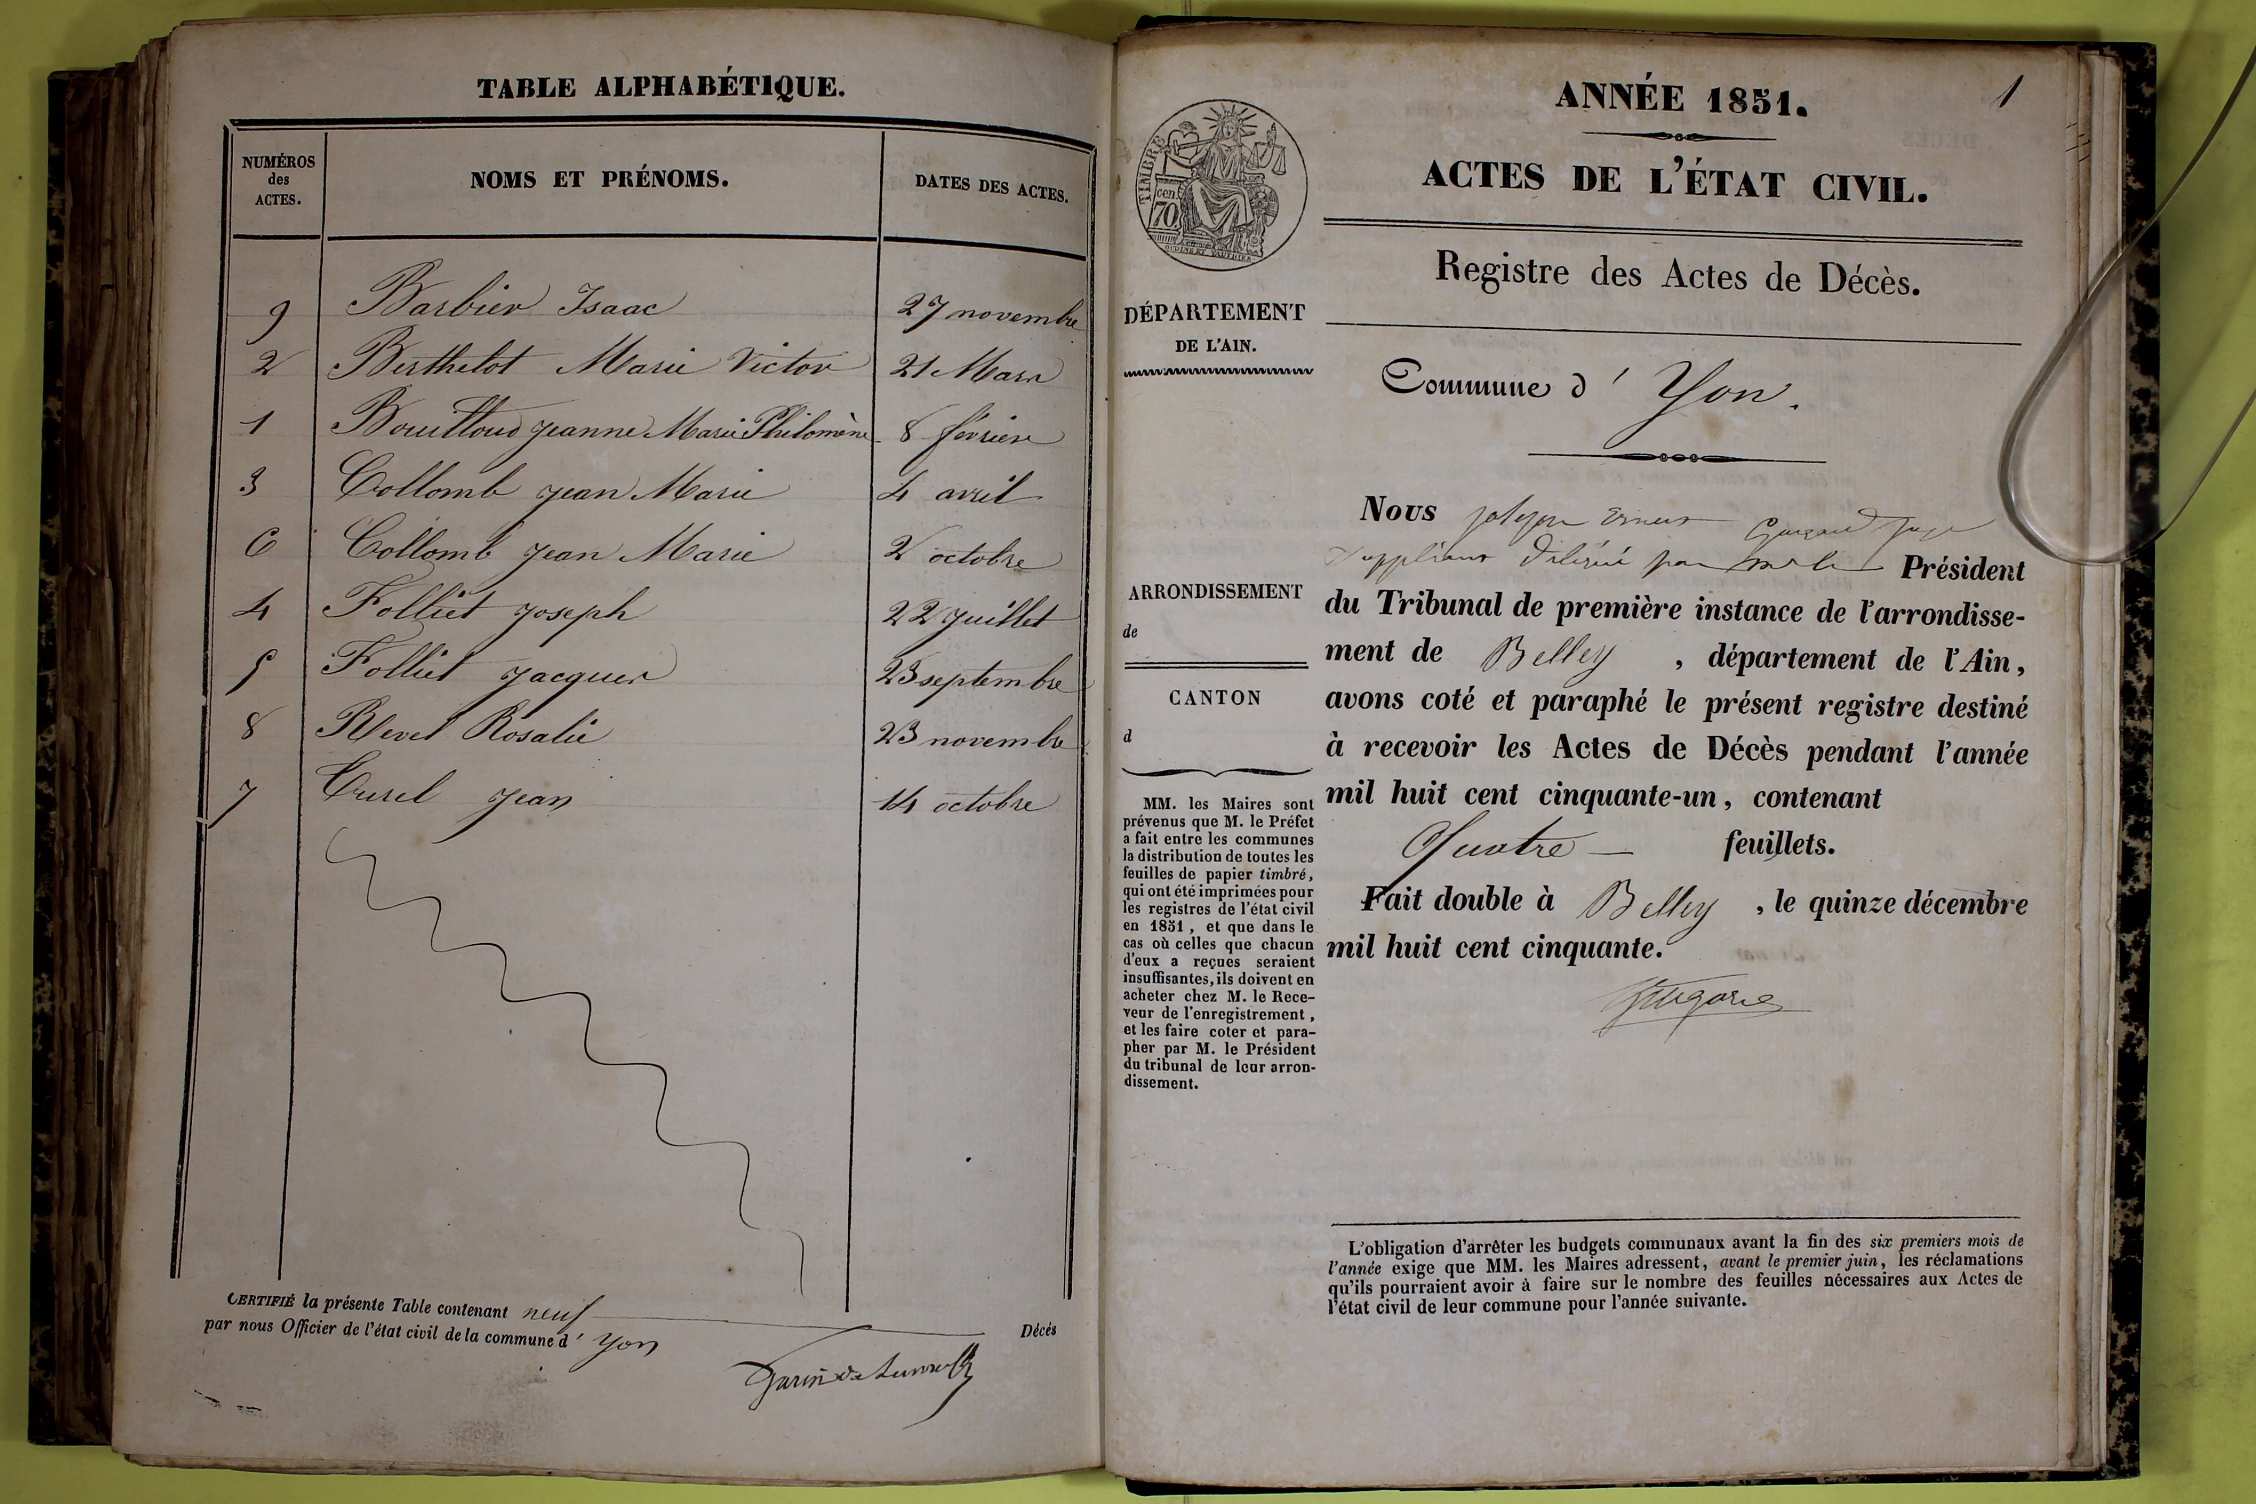 TABLE ALPHABÉTIQUE.
NUMÉROS des ACTES. NOMS ET PRÉNOMS. DATES DES ACTES.
9 Barbier Isaac 27 novembre
2 Berthelot Marie Victor 21 Mars
1 Bouilloud Jeanne Marie Philomène 8 février
3 Collomb Jean Marie 4 avril
6 Collomb Jean Marie 2 octobre
4 Folliet Joseph 22 Juillet
5 Folliet Jacques 23 septembre
8 Revel Rosalie 23 novembre
7 Curel Jean 14 octobre
CERTIFIÉ la présente Table contenant neuf Décés
par nous Officier de l'état civil de la commune d' Yon
1
ANNÉE 1851.
ACTES DE L'ÉTAT CIVIL.
Registre des Actes de Décès.
TIMBRE
70 cen.
DÉPARTEMENT
DE L'AIN.
Commune d' Yon.
ARRONDISSEMENT
de
CANTON
d
MM. les Maires sont
prévenus que M. le Préfet
a fait entre les communes
la distribution de toutes les
feuilles de papier timbré,
qui ont été imprimées pour
les registres de l'état civil
en 1851, et que dans le
cas où celles que chacun
d'eux a reçues seraient
insuffisantes, ils doivent en
acheter chez M. le Rece-
veur de l'enregistrement,
et les faire coter et para-
pher par M. le Président
du tribunal de leur arron-
dissement.
Nous
Président
du Tribunal de première instance de l'arrondisse-
ment de Belley, département de l'Ain,
avons coté et paraphé le présent registre destiné
à recevoir les Actes de Décès pendant l'année
mil huit cent cinquante-un, contenant
Quatre feuillets.
Fait double à Belley, le quinze décembre
mil huit cent cinquante.
L'obligation d'arrêter les budgets communaux avant la fin des six premiers mois de
l'année exige que MM. les Maires adressent, avant le premier juin, les réclamations
qu'ils pourraient avoir à faire sur le nombre des feuilles nécessaires aux Actes de
l'état civil de leur commune pour l'année suivante.